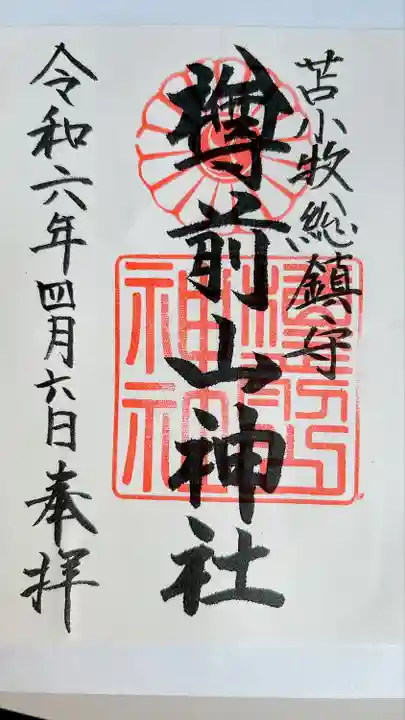 苫小牧総鎮守
樽前山神社
令和六年四月六日奉拝
樽前山
神社